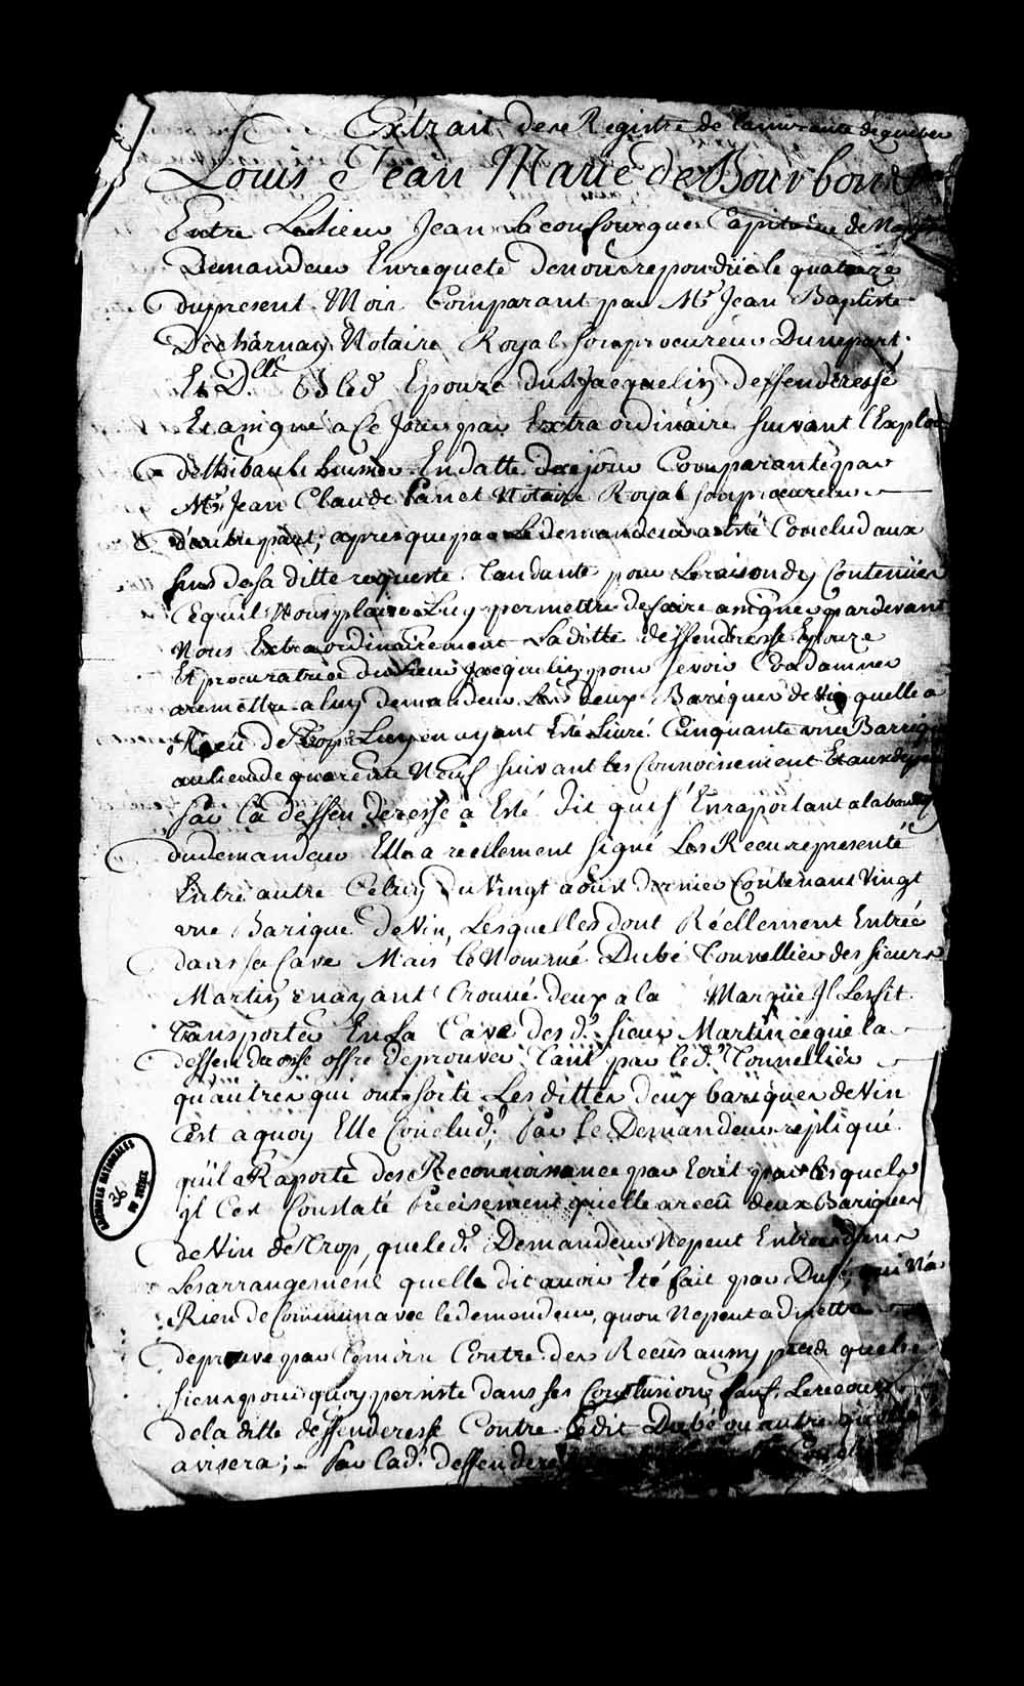 Extrait des Registre de lamirauté de quebec
Louis Jean Marie de Bourbon
Entre Le Sieur Jean Capitaine de Navire
Demandeur En requete de nous repondüe le quatorze
du present Mois Comparant par Mr Jean Baptiste
Decharnay Notaire Royal son procureur Dune part.
Et Dlle Epouze du Sr Jacquelin deffenderesse
Et assigné a Ce Jour par Extra ordinaire suivant l'Exploit
de thibault huissier En datte de ce jour Comparante par
Mr Jean Claude Panet Notaire Royal son procureur
d'autre part; apres que par Le demandeur a Eté Conclud aux
fins de sa ditte requeste Tandante pour Les raisons dy Contenües
Ce quil Nous plaise Luy permettre de faire assigner pardevant
Nous Extraordinairement Laditte deffendresse Epouze
Et procuratrice du Sieur Jacquelin pour se voir Condamner
a remettre a luy demandeur Les deux Bariques de Vin quelle a
Reçu de Trop Luy en ayant Eté Livré Cinquante une Barriques
au lieu de quarente Neuf suivant les Connoissement Et aux depens
Par la deffenderesse a Eté dit que s' En raportant a la bonne foy
du demandeur Elle a reellement signé Les Recu representé
Entre autre Celuy du Vingt aoust dernier Contenant Vingt
une Barique de Vin, Lesquelles sont Réellement Entrée
dans sa Cave Mais le Nommé Dubé Tonnellier des sieurs
Martin en ayant trouvé deux a la Marque Il Les fit
Transporter En La Cave des d. sieur Martin ce que la
deffenderesse offre de prouver Tant par led. Tonnellier
qu'autres qui ont sorti Les dittes deux bariques de Vin
C'est a quoy Elle Conclud. Par Le Demandeur repliqué
quil a Raporté des Reconnoissance par Ecrit par lesquels
il Est Constaté Precisement quelle a reçû deux Bariques
de Vin de Trop, que led. Demandeur Ne peut Entrer dans
Les arrangement quelle dit avoir Eté fait par Dubé, qui N'a
Rien de Commun avec le demandeur, quon Ne peut admettre
de preuve par Temoin Contre des Recûs aussy precis que les
siens pour quoy persiste dans ses Conclusions sauf Le recours
de la ditte deffenderesse Contre Ledit Dubé ou autre qu'elle
avisera; - Par Lad. deffenderesse
ARCHIVES NATIONALES
DU QUEBEC
36